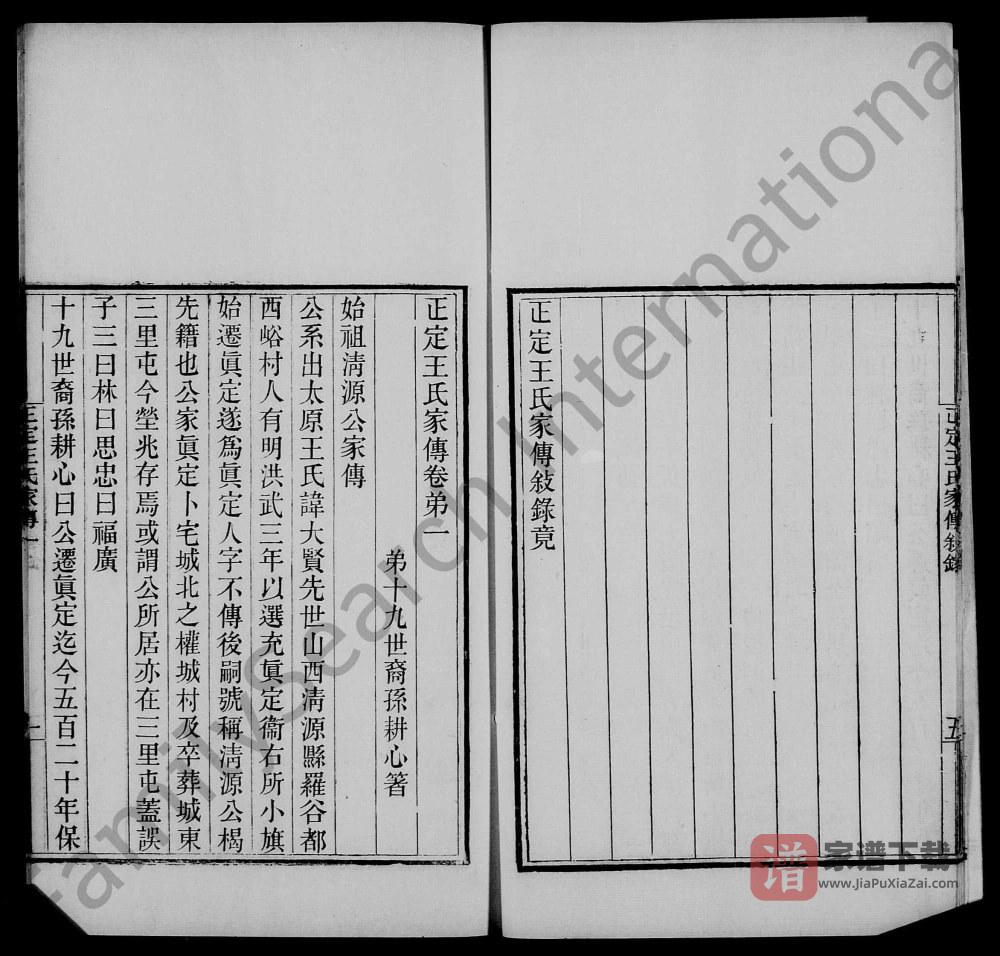 正定王氏家傳敍錄
五
正定王氏家傳敍錄竟
正定王氏家傳卷弟一
弟十九世裔孫耕心箸
始祖淸源公家傳
公系出太原王氏諱大賢先世山西淸源縣羅谷都
西峪村人有明洪武三年以選充眞定衞右所小旗
始遷眞定遂爲眞定人字不傳後嗣號稱淸源公楬
先籍也公家眞定卜宅城北之權城村及卒葬城東
三里屯今塋兆存焉或謂公所居亦在三里屯蓋誤
子三曰林曰思忠曰福廣
十九世裔孫耕心曰公遷眞定迄今五百二十年保
正定王氏家傳一
一
FamilySearch International
谱
家谱下载
www.JiaPuXiaZai.com